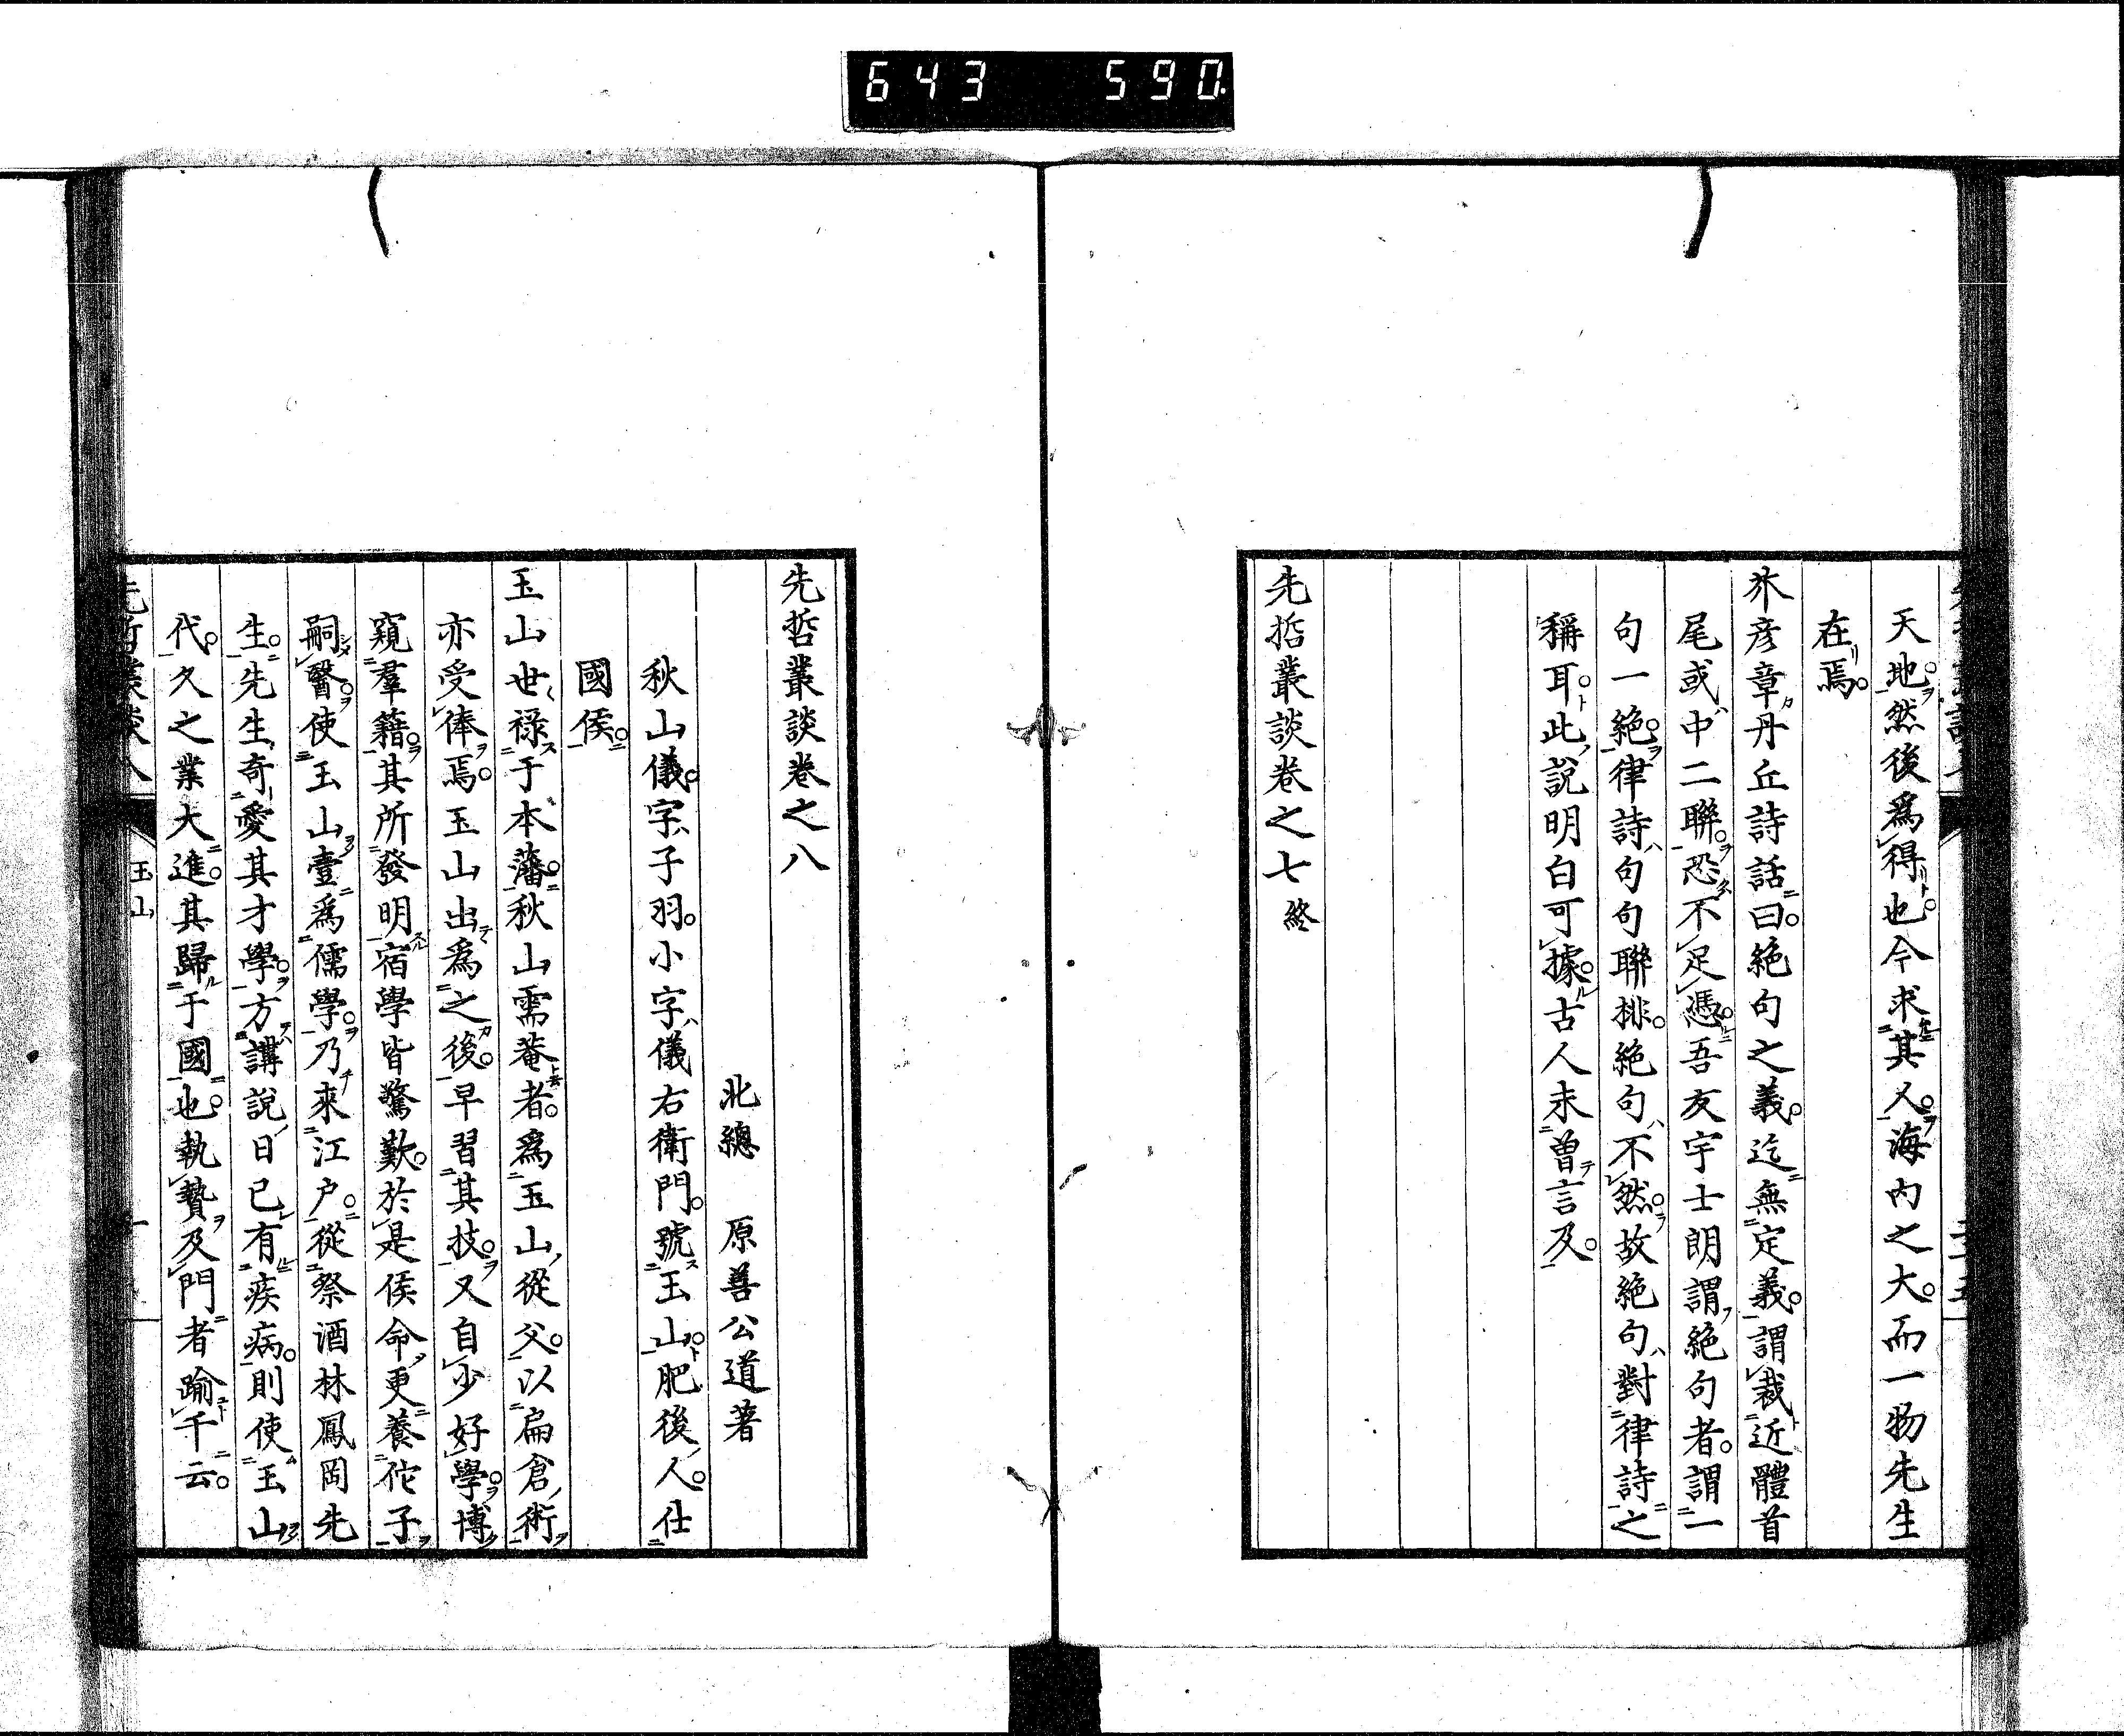 643 590
天地然後爲得也今求其人海內之大而一物先生
在焉
芥彥章丹丘詩話曰絕句之義迄無定義謂裁近體首
尾或中二聯恐不足憑吾友宇士朗謂絕句者謂一
句一絕律詩句句聯排絕句不然故絕句對律詩之
稱耳此說明白可據古人未曾言及
先哲叢談卷之七終
先哲叢談卷之八
北總 原善公道著
秋山儀字子羽小字儀右衛門號玉山肥後人仕
國侯
玉山世祿于本藩秋山需菴者爲玉山從父以扁倉術
亦受俸焉玉山出爲之後早習其技又自少好學博
窺羣籍其所發明宿學皆驚歎於是侯命更養佗子
嗣醫使玉山壹爲儒學乃來江戶從祭酒林鳳岡先
生先生奇愛其才學方講說日已有疾病則使玉山
代久之業大進其歸于國也執贄及門者踰千云
玉山